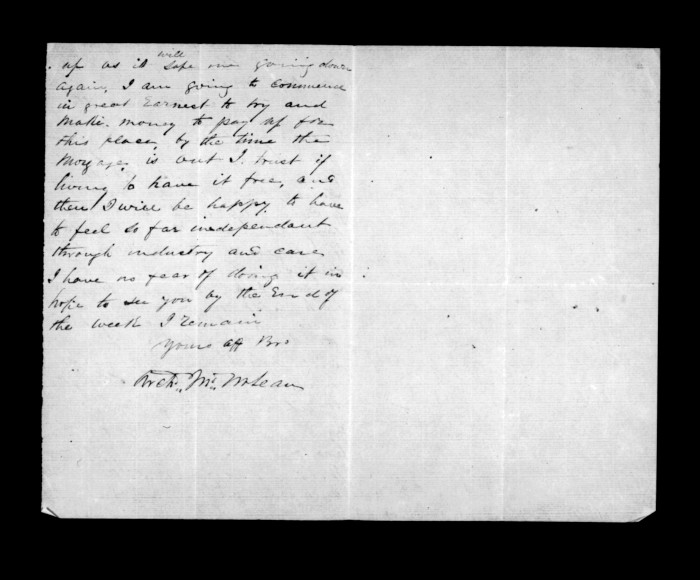 up as it will save me going down
again, I am going to commence
in great Earnest to try and
make money to pay up for
this place, by the time the
Morgage, is out I. trust if
living to have it free, and
then I will be happy to have
to feel so far independant
through industry and care
I have no fear of doing it in
hope to see you by the End of
the week I remain
Yours aff Bro
Archd. McLean